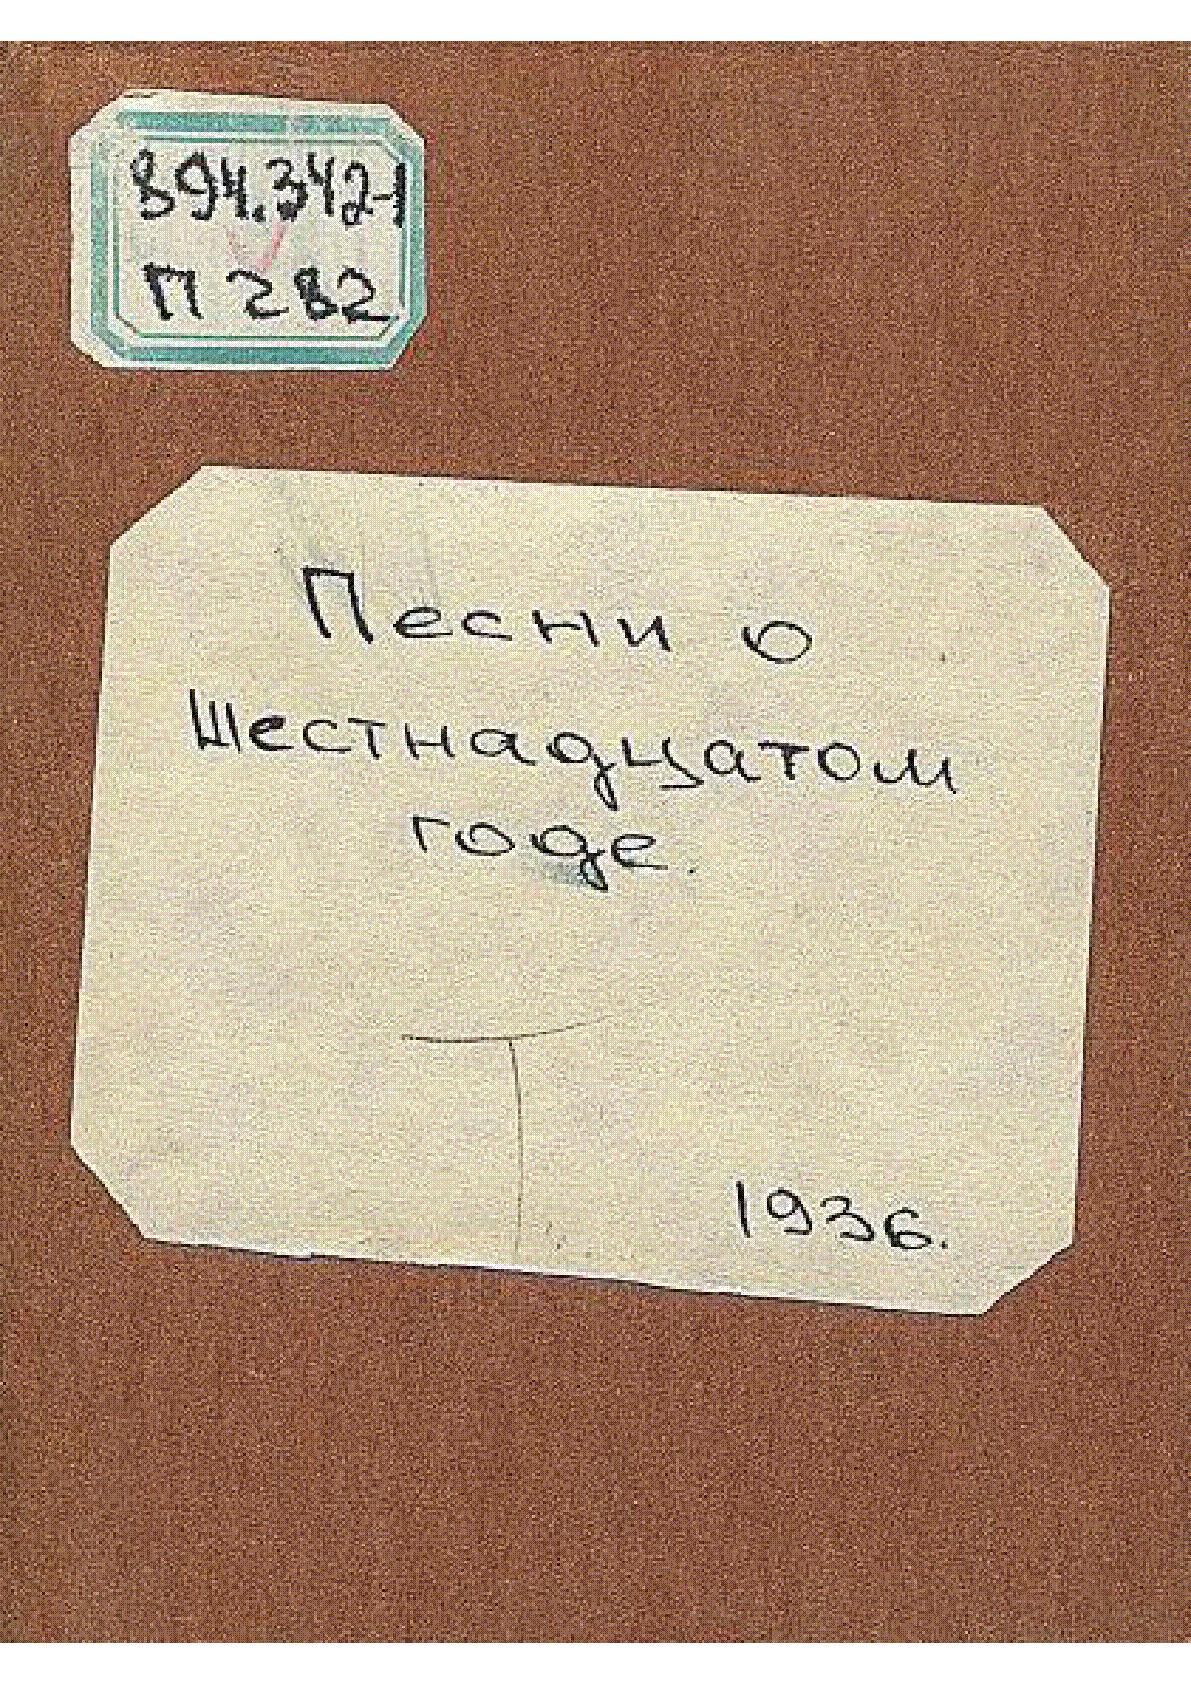 894.342-1
П 282
Песни о
Шестнадцатом
годе.
1936.